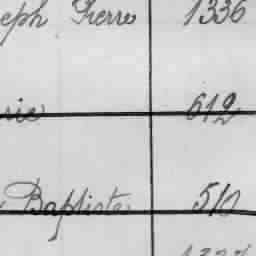 eph Pierre 1336
rie 612
Baptiste 510